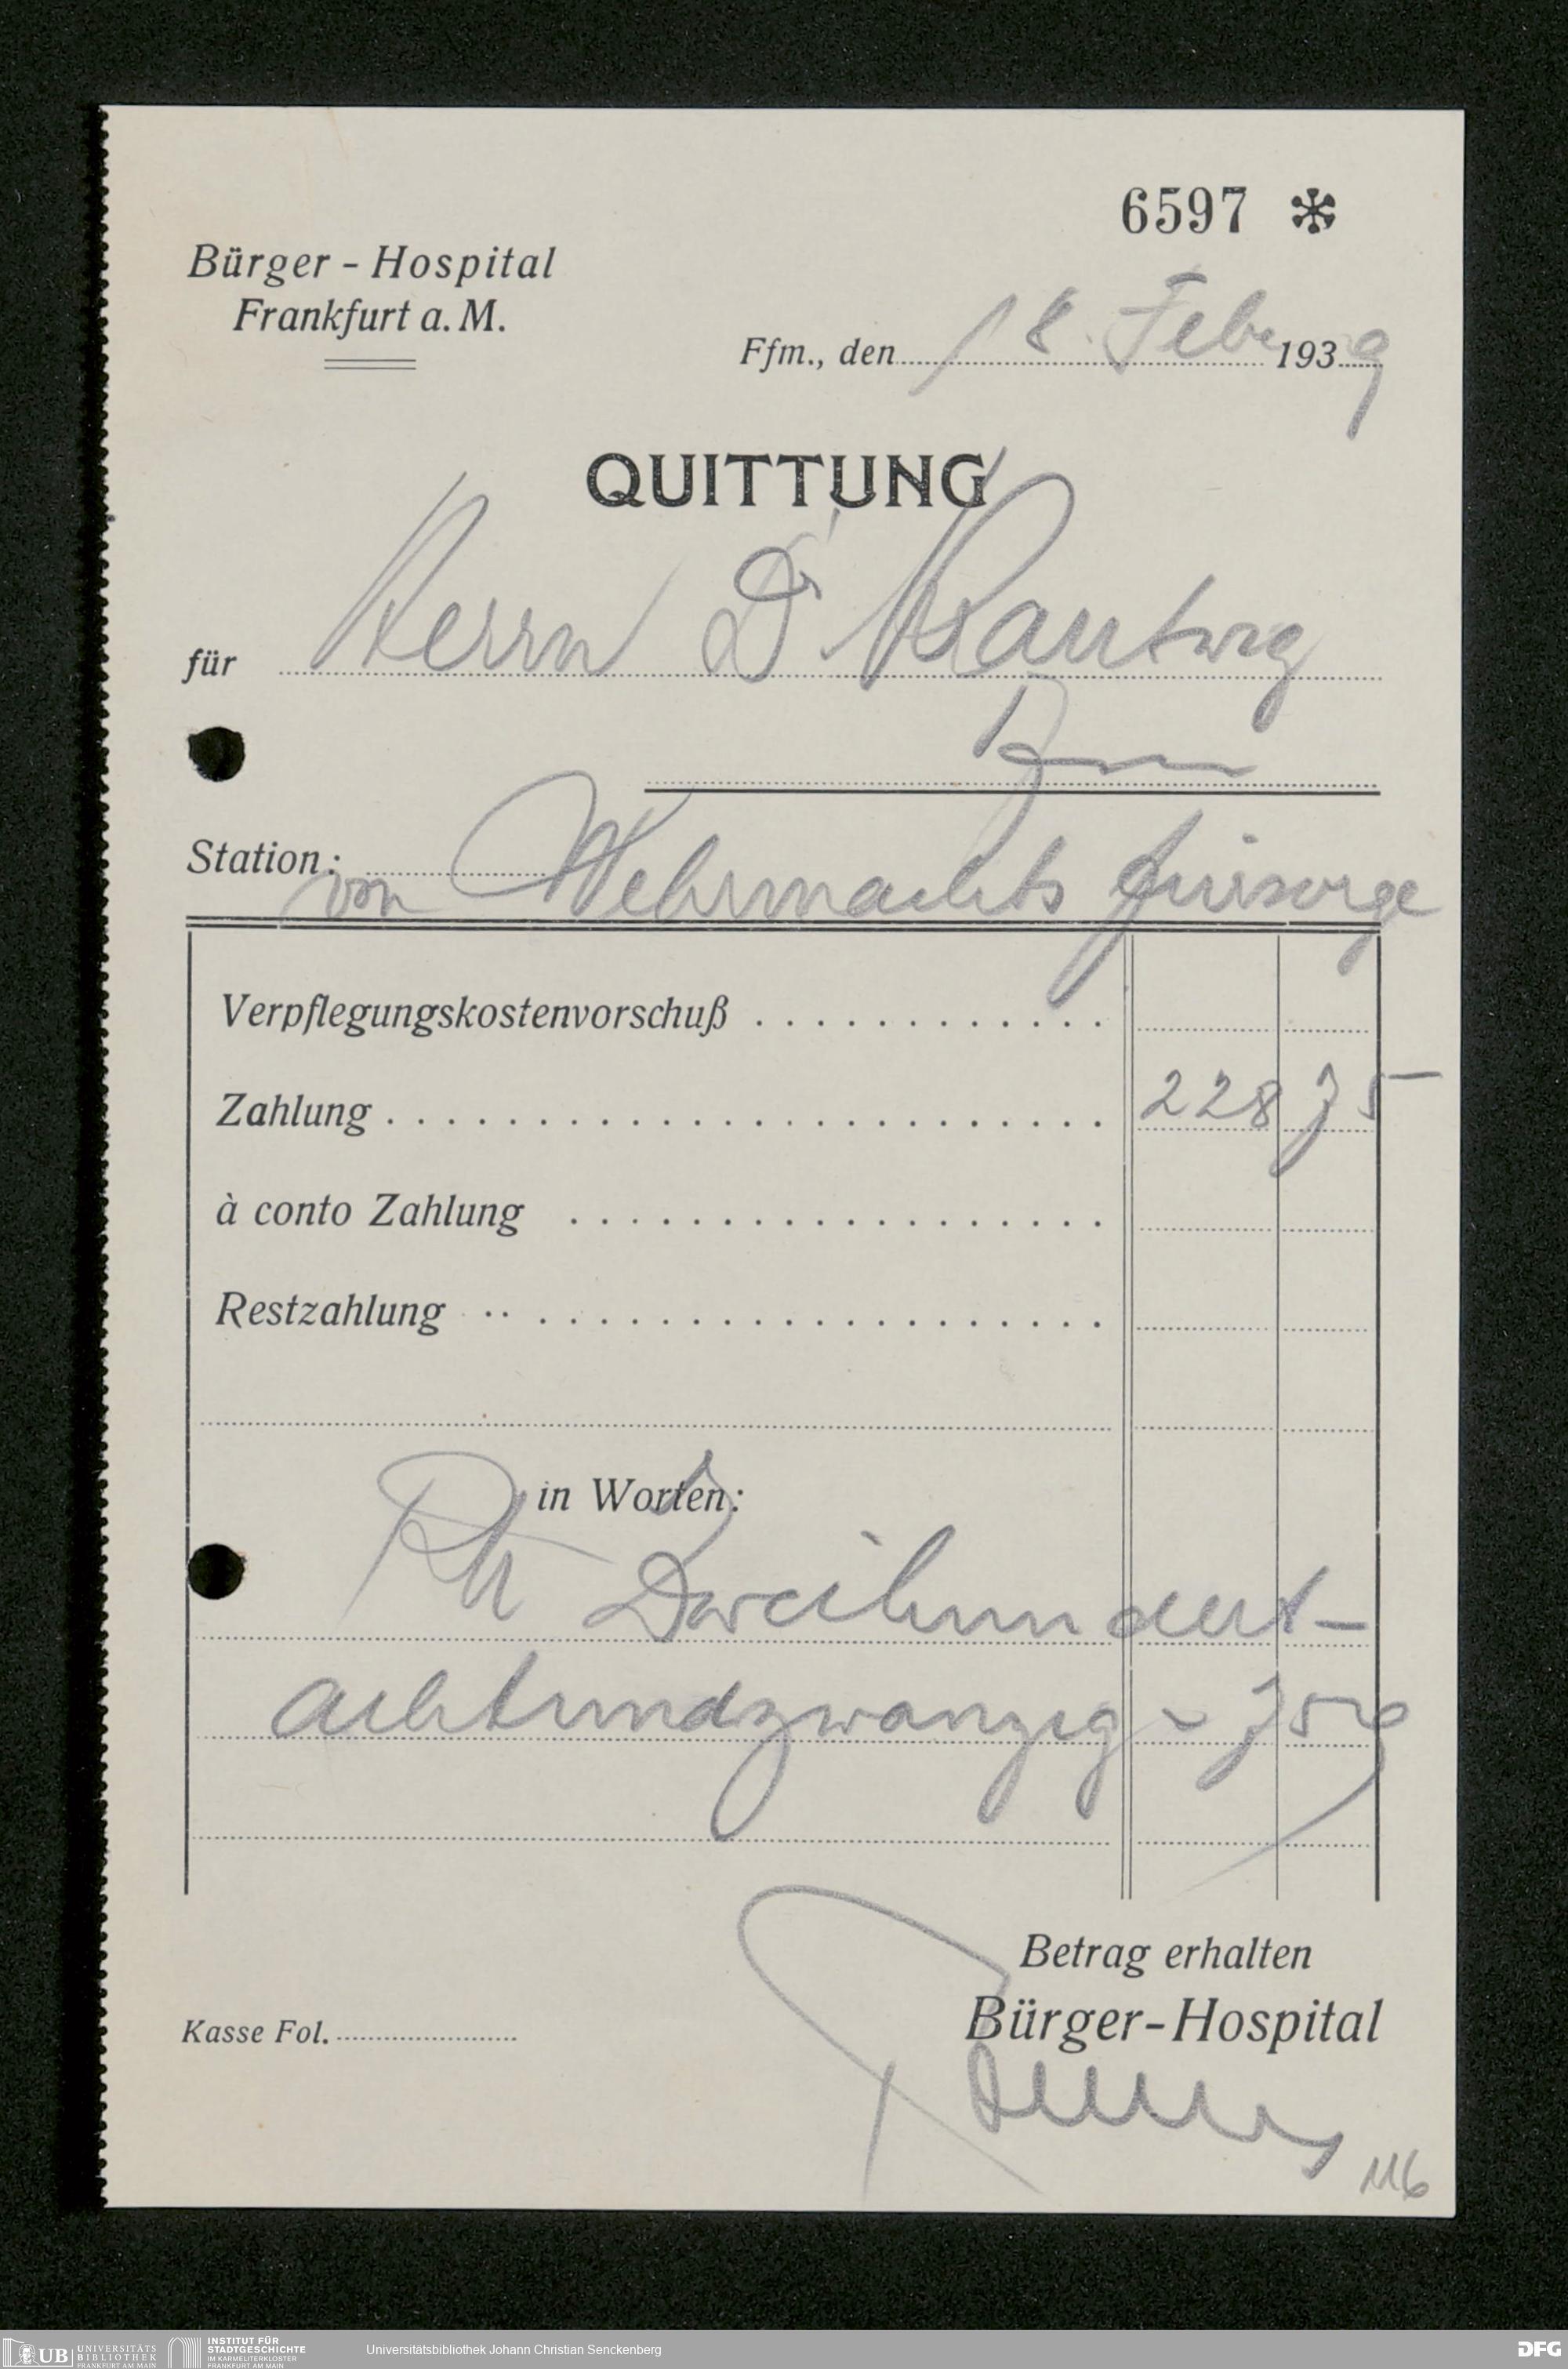 6597 *
Bürger - Hospital
Frankfurt a. M.
Ffm., den 18. Febr 1939
QUITTUNG
für Herrn Dr Kautwig
Station:
von Wehrmachts fürsorge
Verpflegungskostenvorschuß
Zahlung 228 75
à conto Zahlung
Restzahlung
in Worten:
RM Zweihundert-
achtundzwanzig - 75
Betrag erhalten
Bürger-Hospital
Kasse Fol.
116
UB UNIVERSITÄTS BIBLIOTHEK FRANKFURT AM MAIN
INSTITUT FÜR STADTGESCHICHTE IM KARMELITERKLOSTER FRANKFURT AM MAIN
Universitätsbibliothek Johann Christian Senckenberg
DFG